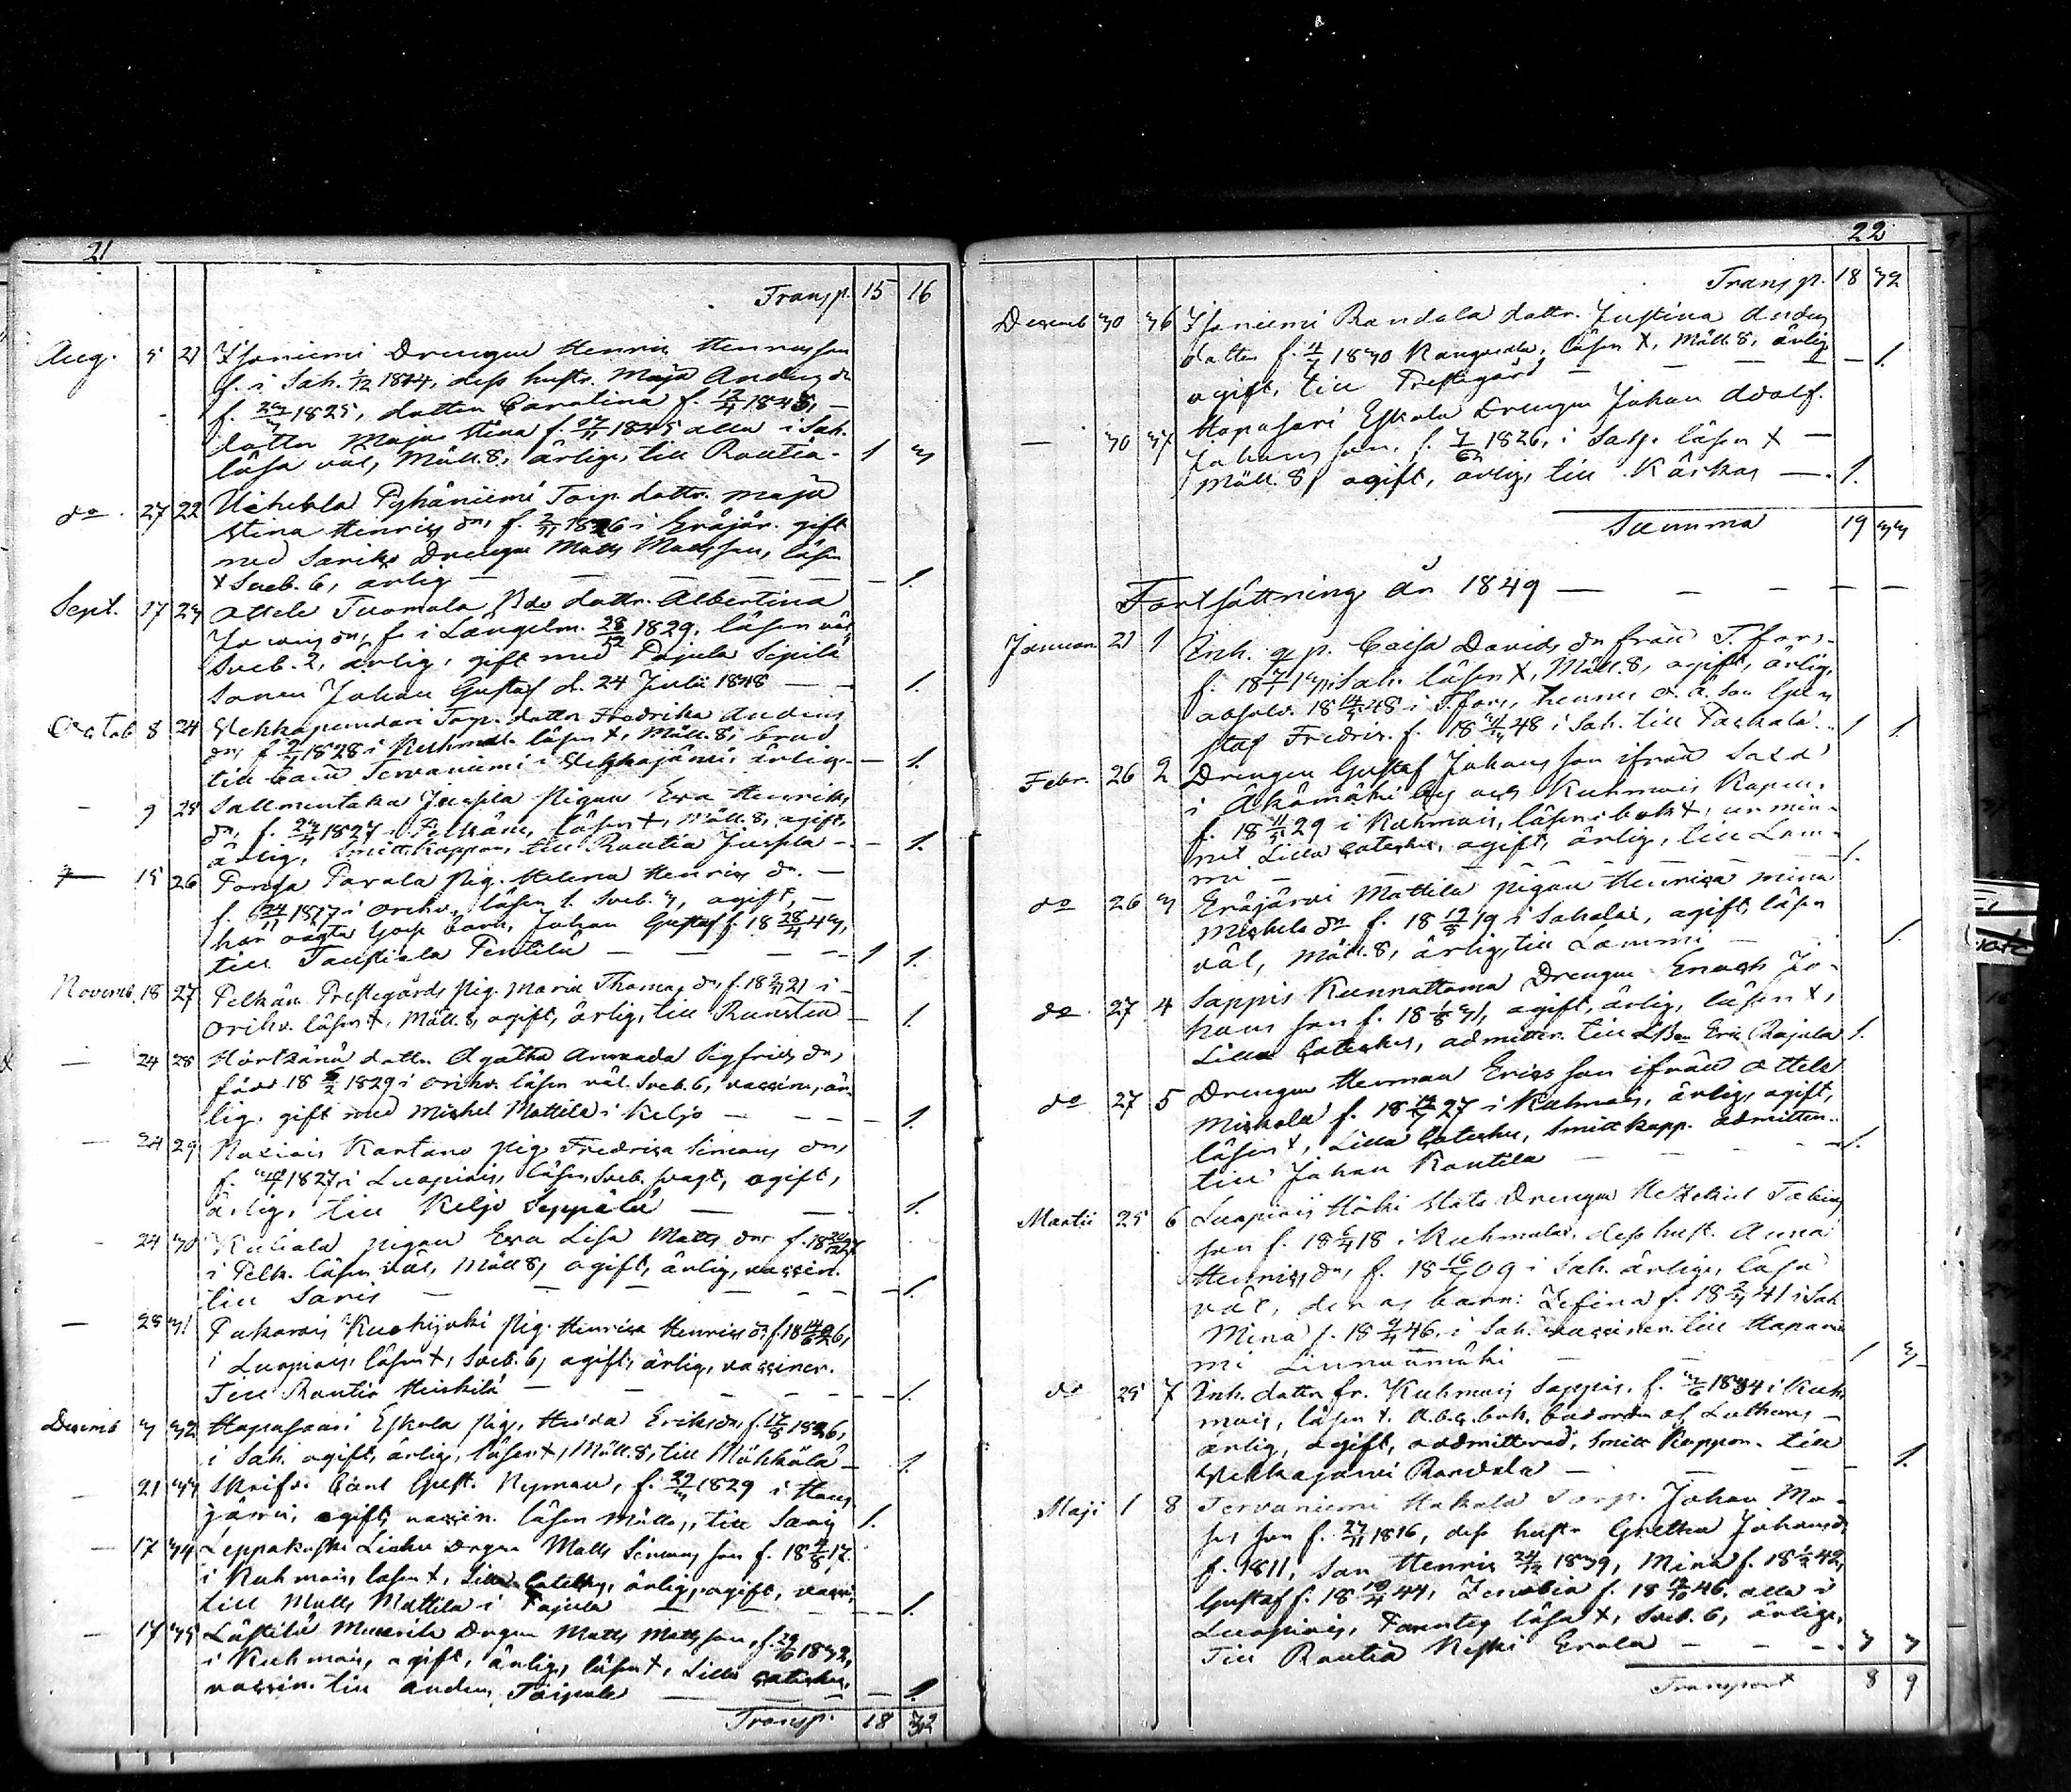 21
Transp. 15 16
Aug. 5 21 Isoniemi Drengen Henric Henricsson
f. i Sah. 1/12 1824, dess hustr. Maja Anders dr
f. 1825, dottren Carolina f. 12/4 1843,
dottren Maja Stina f. 27/11 1845 alla i Sah.
läsa väl, Möll. 8, ärliga, till Rautia. 1 3
do 27 22 Uiherla Pyhäniemi Torp. dottr. Maja
Stina Henrics dr, f. 1826 i Eräjär. gift
med Sariks Drengen Matts Mattsson, läser
x Sveb. 6, ärlig — 1.
Sept. 17 23 Attele Tuomala Bde dottr. Albertina
f. i Längelm. 28/12 1829, läser väl,
Sveb. 2, ärlig, gift med Pajula Sipilä
Sonen Johan Gustaf d. 24 Julii 1848 — 1.
Octob 8 24 Vehkapundari Torp. dottr. Fredrika Anders
dr, f. 1828 i Kuhmal. läser x, Möll. 8, brud
till Tervaniemi i Vehkajärvi, ärlig — 1.
— 9 25 Sallmentaka Juspla Pigan Eva Henriks
dr, f. 1827 i Pelkäne, läser x, Möll. 8, ogift,
ärlig, Smittkoppor, till Rautia Juspla — 1.
15 26 Ponsa Pavala Pig. Helena Henrics dr. —
f. 24/11 1817 i Orihv., läser x Sveb. 3, ogift, —
har oägta barn, Johan Gustaf f. 18 28/4 43,
till Taustiala Penttilä — 1 1.
Novemb. 18 27 Pelkän Prestegårds Pig. Maria Thomas dr, f. 1821 i
Orihv. läser x, Möll. 8, ogift, ärlig, till — 1.
— 24 28 dottr. Agatha Amanda Sigfrids dr,
född 18 6/2 1829 i Orihv. läser väl. Sveb. 6, vaccin., är-
lig. gift med Michel Mattila i Keljo — 1.
— 24 29 Kantano Pig. Fredrica Simons dr,
f. 1827 i Luopiois, läser Sveb. svagt, ogift,
ärlig, till Keljo Seppälä — 1.
24 30 Kukiala pigan Eva Lisa Matts dr f.
i Pelk. läser väl, Möll 8, ogift, ärlig, vaccin.
till Saris — 1.
— 28 31 Pakarais Kuohijoki Pig. Henrica Henrics dr f. 18 14/6 26,
i Luopiois, läser x, Sveb. 6, ogift, ärlig, vacciner.
Till Rautia Heickilä — 1.
Decemb 3 32 Haposaari Eskola Pig. Eriks dr, f. 17/8 1826,
i Sah. ogift, ärlig, läser x, Möll. 8, till Möhkölä — 1.
21 33 Skrifv. Carl Gust. Nyman, f. 1829 i Haus
järvi, ogift, vaccin. läser Möll., till Saris 1.
— 17 34 Leppäkoski Drgen Matts Simonsson f. 18 4/8 17
i Kuhmois, läser x, Lilla Cateches, ärlig, ogift, vaccin.
till Matts Mattila i Pajula — 1.
— 17 35 Lästilä Drgen Matts Mattsson, f. 1832,
i Kuhmois, ogift, ärlig, läser x, Lilla Cateches,
vaccin. till Anders Taipale — 1.
Transp. 18 32
22
Transp. 18 32
Decemb 30 36 Isoniemi Randala dottr. Justina Anders
dotter f. 1830 Kangasala, läser x, Möll. 8, ärlig
ogift, till Prestegård — 1.
— 30 37 Haposari Eskola Drengen Johan Adolf
Johansson, f. 1826, i Sah. läser x —
Möll. 8, ogift, ärlig, till Käskas — 1.
Summa 19 33
Fortsättning år 1849 —
Januari 21 1 Inh. q. p. Caisa Davids dr från T.fors.
f. 18 i Sah. läser x, Möll. 8, ogift, ärlig,
absolv. 48 i T.fors, hennes o. ä. son Gu-
staf Fredric. f. 48 i Sah. till Paskala. 1 1.
Febr. 26 2 Drengen Gustaf Johansson ifrån
i by och Kuhmois Kapell,
f. 18 29 i Kuhmois, läser i bok x,
Lilla Cateches, ogift, ärlig, till Lam-
mi — 1.
do 26 3 Eräjärvi Mattila pigan Henrica Mina
Michels dr f. 18 12/8 19 i Sahalax, ogift, läser
väl, Möll. 8, ärlig, till Lammi — 1.
do 27 4 Sappis Kunnattoma Drengen Enoch Jo-
hansson f. 18 1/8 31, ogift, ärlig, läser x,
Lilla Cateches, admitter. till Eric Pajula 1.
do 27 5 Drengen Herman Ericsson ifrån Attela
Mickola f. 27 i Kuhmois, ärlig, ogift,
läser x, Lilla Cateches, Smittkopp. admitter.
till Johan Rautila — 1.
Martii 25 6 Luopiois Drengen Hezekiel Tobias
son f. 18 18 i Kuhmalax, dess hust. Anna
Henrics dr, f. 18 16 09 i Sah. ärliga, läsa
väl, deras barn: Zefina f. 18 41 i Sah.
Mina f. 18 46, i Sah. vacciner. till Hapanie
mi Linnanmäki — 1 3
do 25 7 Inh. dottr. fr. Kuhmois Sappis. f. 1834 i Kuh
mois, läser x. a.b.c. bok, budorden af Lutherus —
ärlig, ogift, oadmitterad, Smitt Koppor. till
Vehkajärvi Randala — 1.
Maji 1 8 Tervaniemi Hakala Torp. Johan Mo-
ses son f. 27/11 1816, dess hustr Gretha Johans dr
f. 1811, Son Henric 24/12 1839, Mina f. 18 42,
Gustaf f. 18 44, Zenobia f. 18 46, alla i
Luopiois, Parentes läsa x, Sveb. 6, ärliga,
Till Rautia Keski Erola — 3 3
Transport 8 9